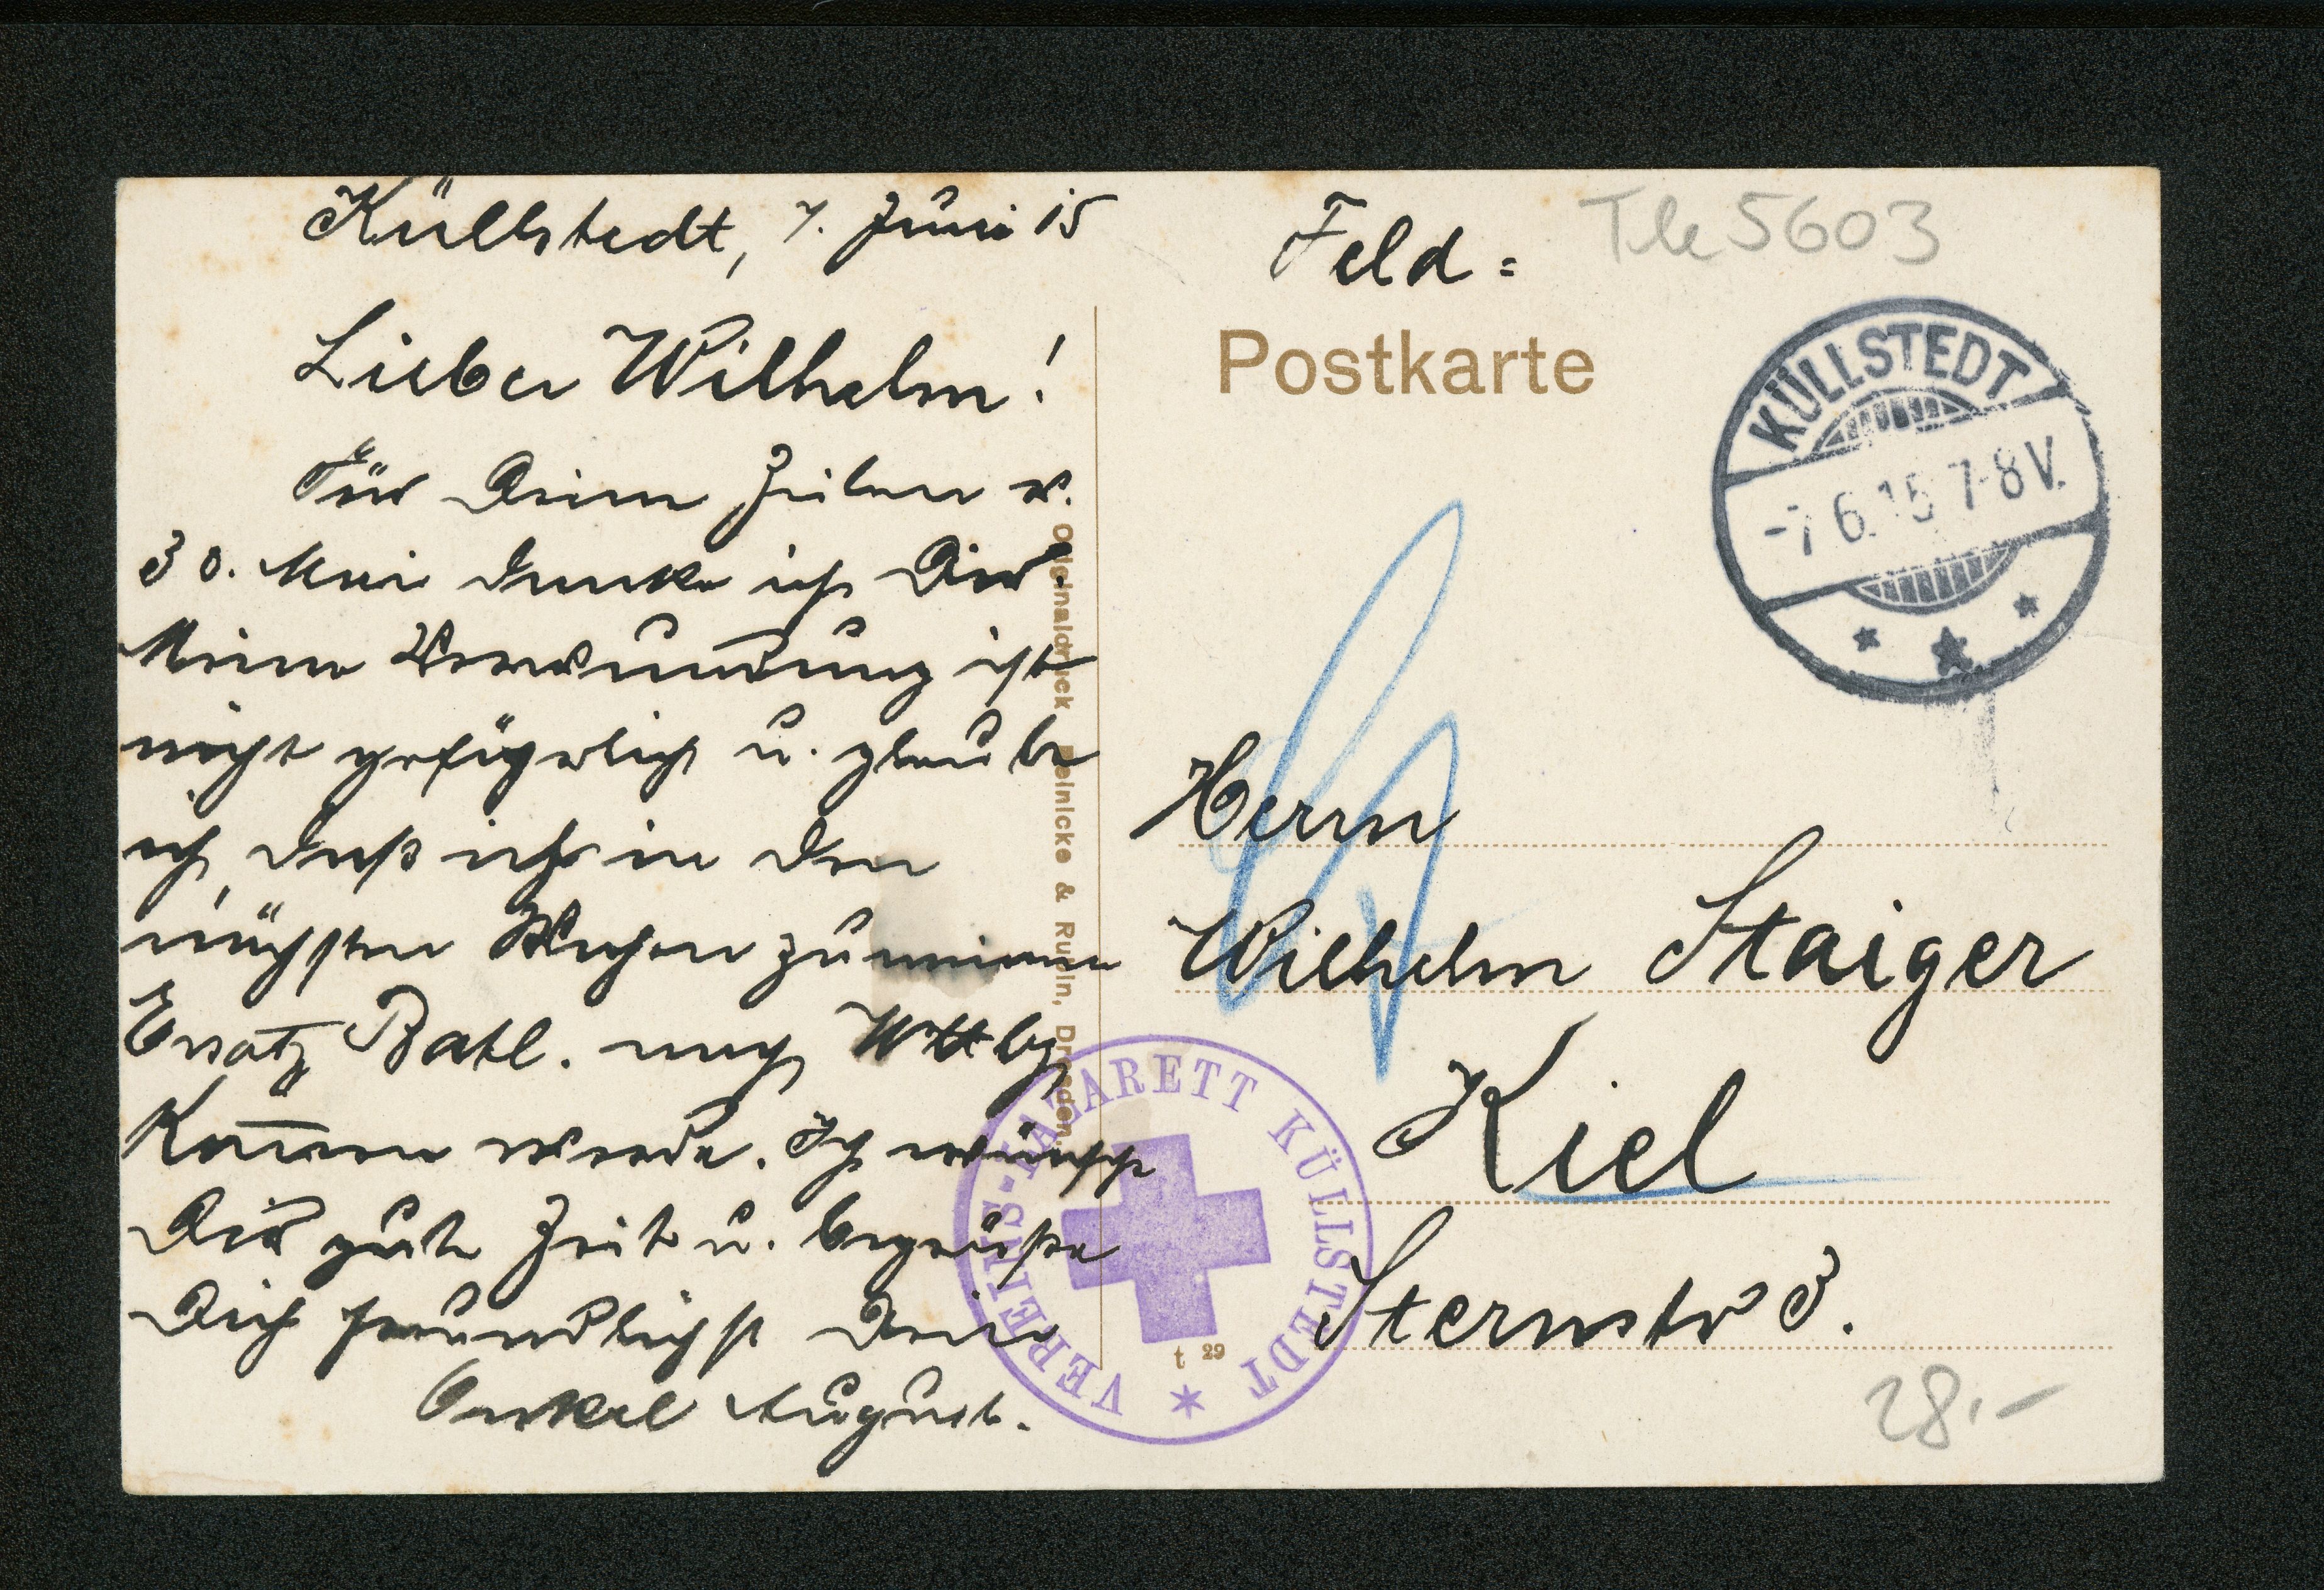 Küllstedt, 7. Juni 15
Lieber Wilhelm!
Für Deine Zeilen v.
30. Mai danke ich Dir.
Meine Verwundung ist
nicht gefährlich u. glaube
ich, daß ich in den
nächsten Wochen zu meinem
Ersatz Batl. nach Wttbg
kom̅en werde. Ich wünsche
Dir gute Zeit u. begrüße
Dich freundlichst Dein
Onkel August.
Originaldruck Reinicke & Rubin, Dresden.
Feld=
Tle 5603
Postkarte
KÜLLSTEDT
-7.6.15 7-8V.
Herrn
Wilhelm Staiger
Kiel
Sternstr 3.
VEREINS-LAZARETT KÜLLSTEDT
t 29
28,-